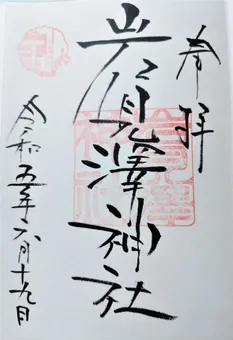 奉拝
岩見澤神社
令和五年六月十九日